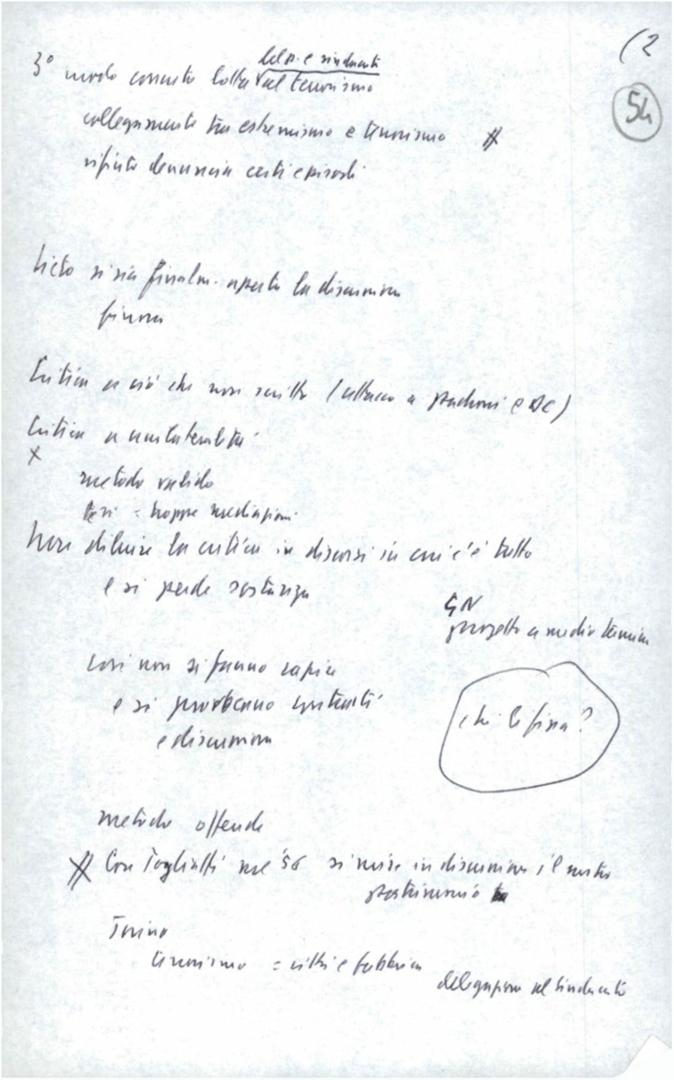 (2
54
del p. e sindacati
3° modo concreto lotta al terrorismo
collegamento tra estremismo e terrorismo #
rifiuto denuncia certi episodi
Lieto si sia finalm. aperta la discussione
finora
Critica a ciò che non scritto (attacco a padroni e DC)
Critica a unilateralità
x
metodo valido
tesi = troppe mediazioni
Non diluire la critica in discorsi in cui c'è tutto
e si perde sostanza
GN
progetto a medio termine
così non si fanno capire
e si provocano contrasti
e discussioni
chi lo fissa?
metodo offende
# Con Togliatti nel '56 si mise in discussione il nostro
patrimonio
Torino
terrorismo = città e fabbrica
delegazione al sindacato